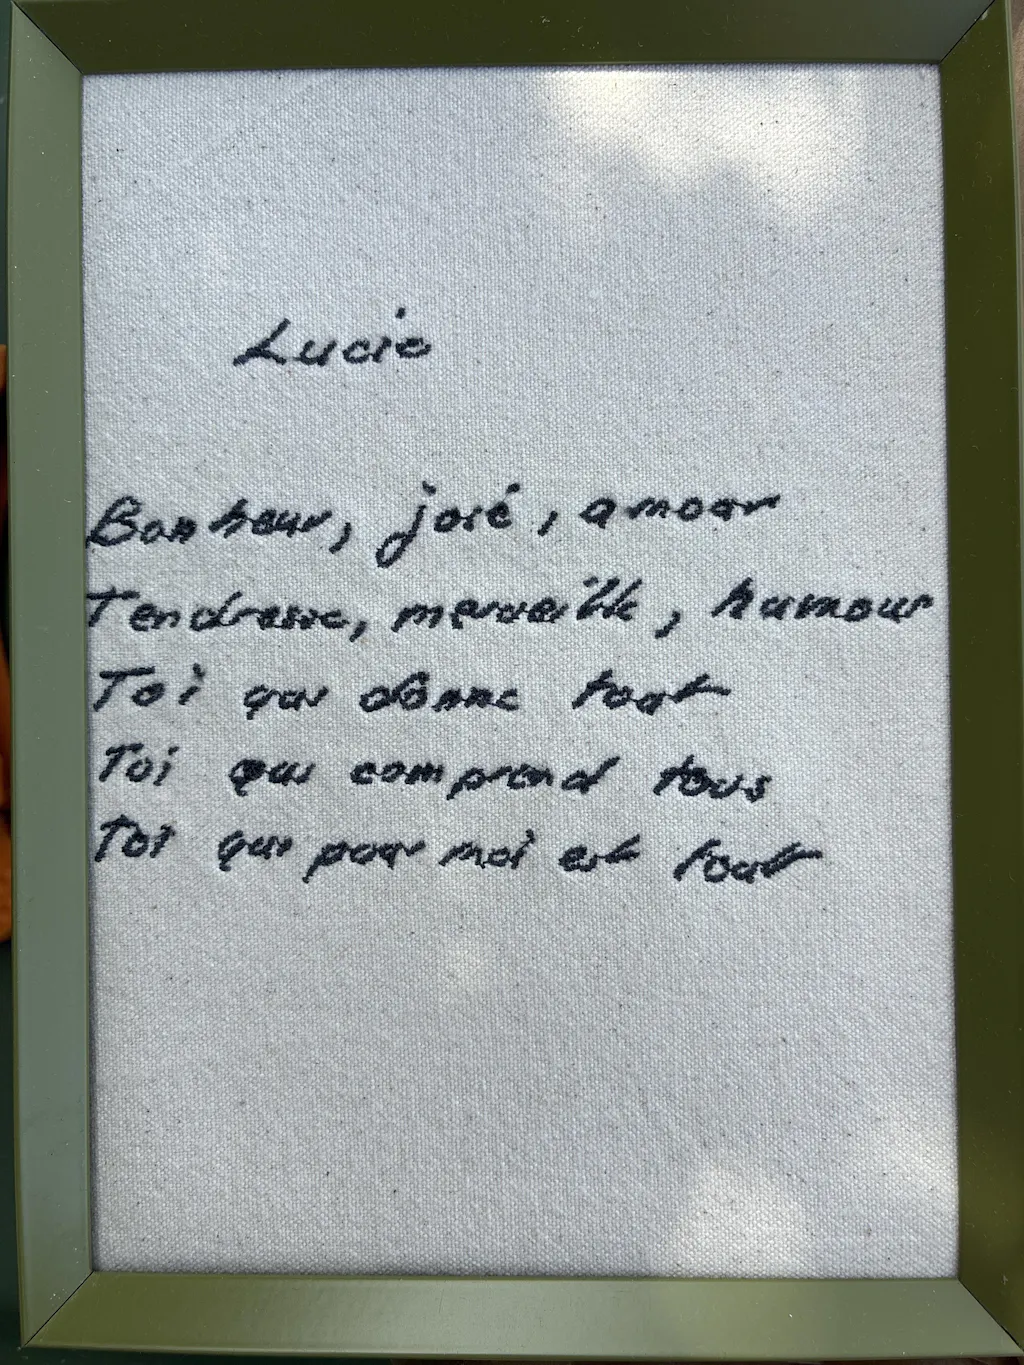 Lucie
Bonheur, joie, amour
Tendresse, merveille, humour
Toi qui donne tout
Toi qui comprend tous
Toi qui pour moi est tout